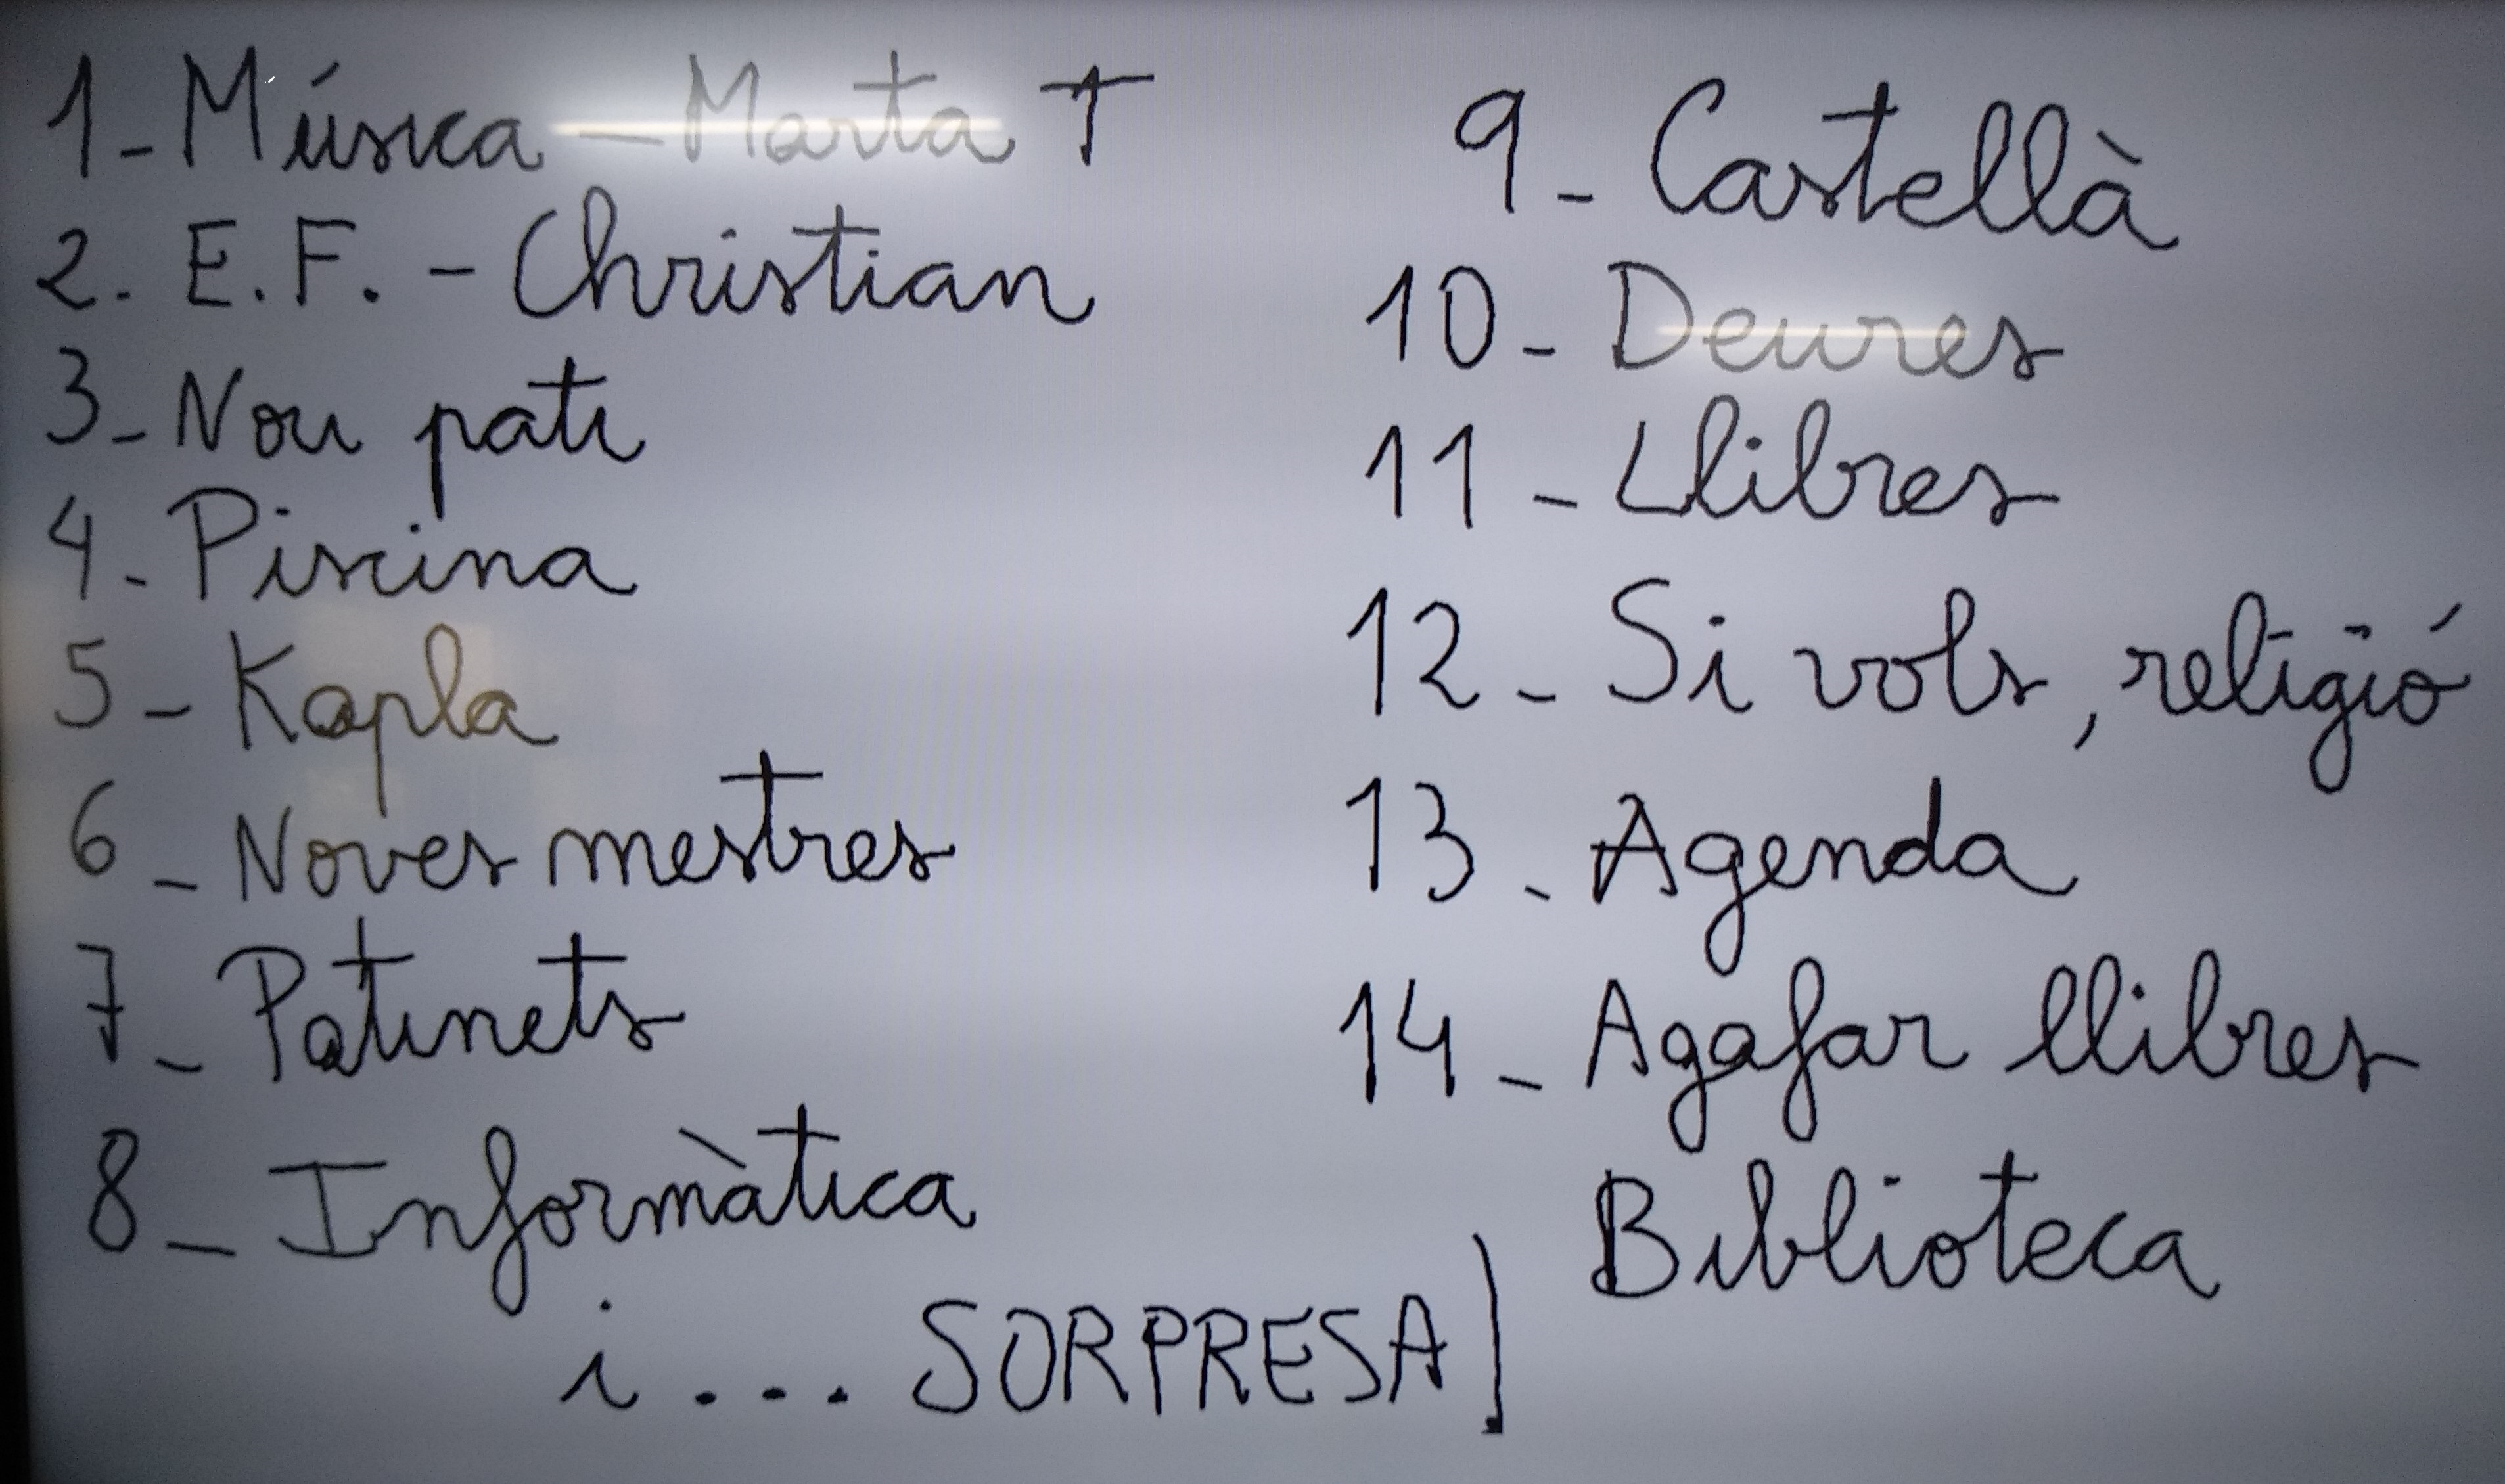 1- Música - Marta T
2. E.F. - Christian
3- Nou pati
4- Piscina
5- Kapla
6- Noves mestres
7- Patinets
8- Informàtica
i... SORPRESA!
9- Castellà
10- Deures
11- Llibres
12- Si vols, religió
13- Agenda
14- Agafar llibres
Biblioteca